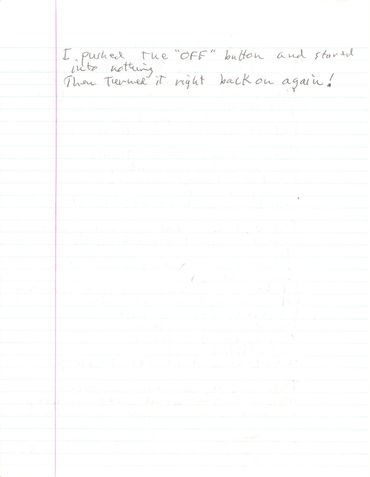 I pushed the "OFF" button and stared
into nothing
Then Turned it right back on again!